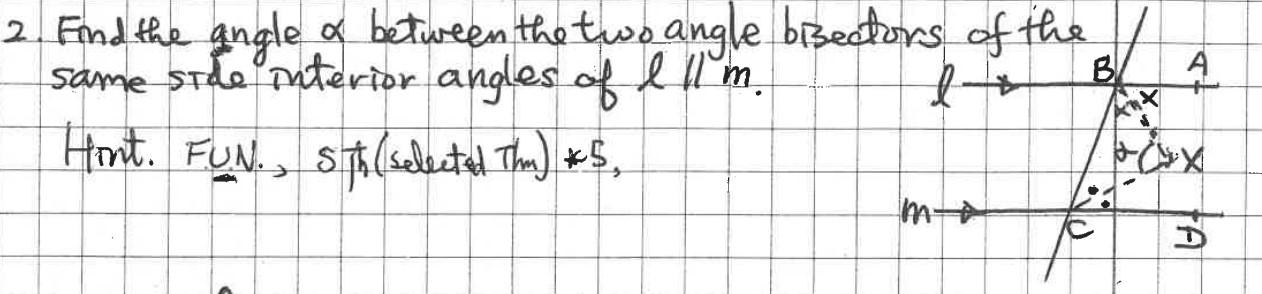 2. Find the angle α between the two angle bisectors of the
same side interior angles of l // m.
Hint. FUN., STh (selected Thm) *5,
l B A
x
x
α x
m C D